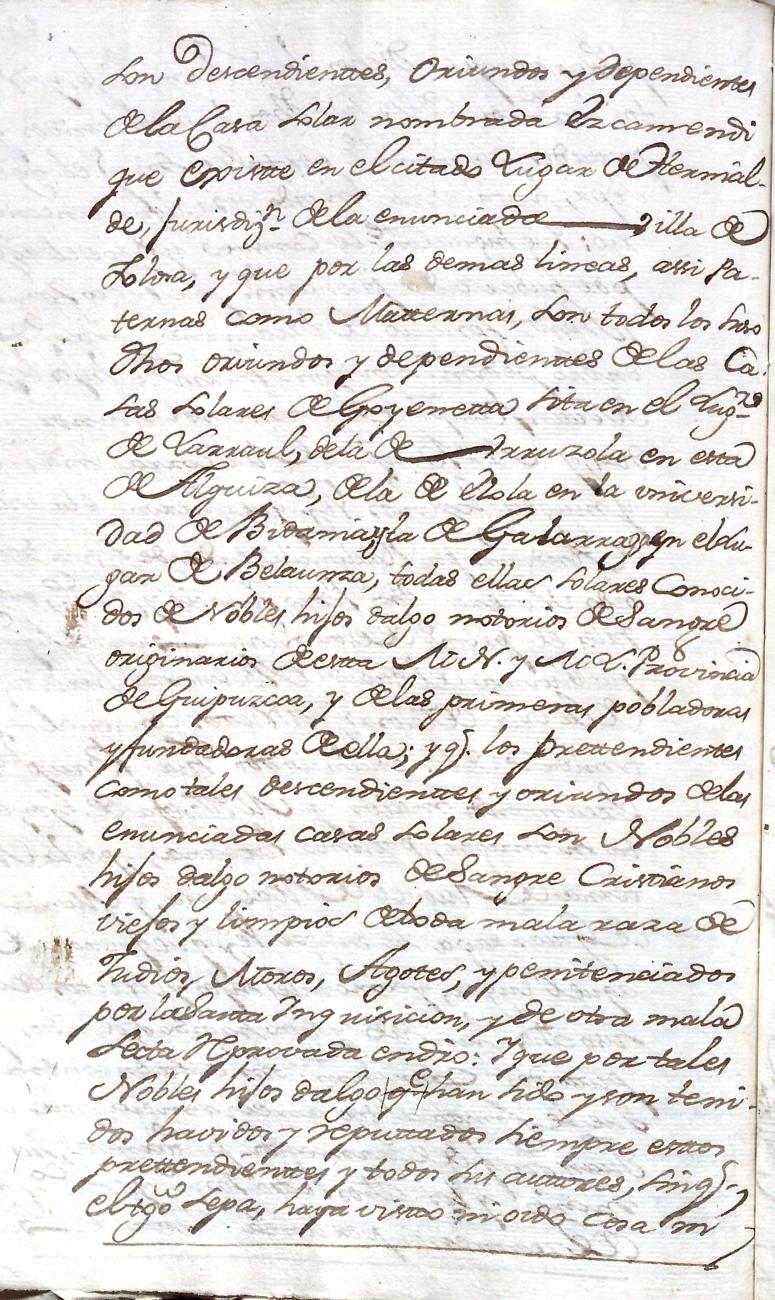 son descendientes, Oriundos y dependientes
de la Casa solar nombrada Ezcamendi
que existte en el citado Lugar de Hernial-
de, jurisdizn. de la enunciada villa de
Tolosa, y que por las demas lineas, assi pa-
ternas como Matternas, son todos los suso
dhos oriundos y dependienttes de las Ca-
sas solares de Goyenetta sita en el Lugr.
de Larraul, de la de Irruzola en esta
de Alquiza, de la de Elola en la vniversi-
dad de Bidania, y la de Galarraga en el Lu-
gar de Belaunza, todas ellas solares Conoci-
dos de Nobles hijos dalgo notorios de Sangre
originarios de estta M. N. y M. L. Provincia
de Guipuzcoa, y de las primeras pobladoras
y fundadoras de ella; y q. los prettendientes
como tales descendienttes y oriundos de las
enunciadas casas solares son Nobles
hijos dalgo notorios de Sangre Cristianos
viejos y limpios de toda mala raza de
Judios, Moros, Agotes, y penitenciados
por la Santa Inquisicion, y de otra mala
secta Reprovada en dro: Y que por tales
Nobles hijos dalgo qe han sido y son teni-
dos havidos y reputtados siempre esttos
prettendienttes y todos sus auttores, sin q.
el tgo sepa, haya vistto ni oido cosa en